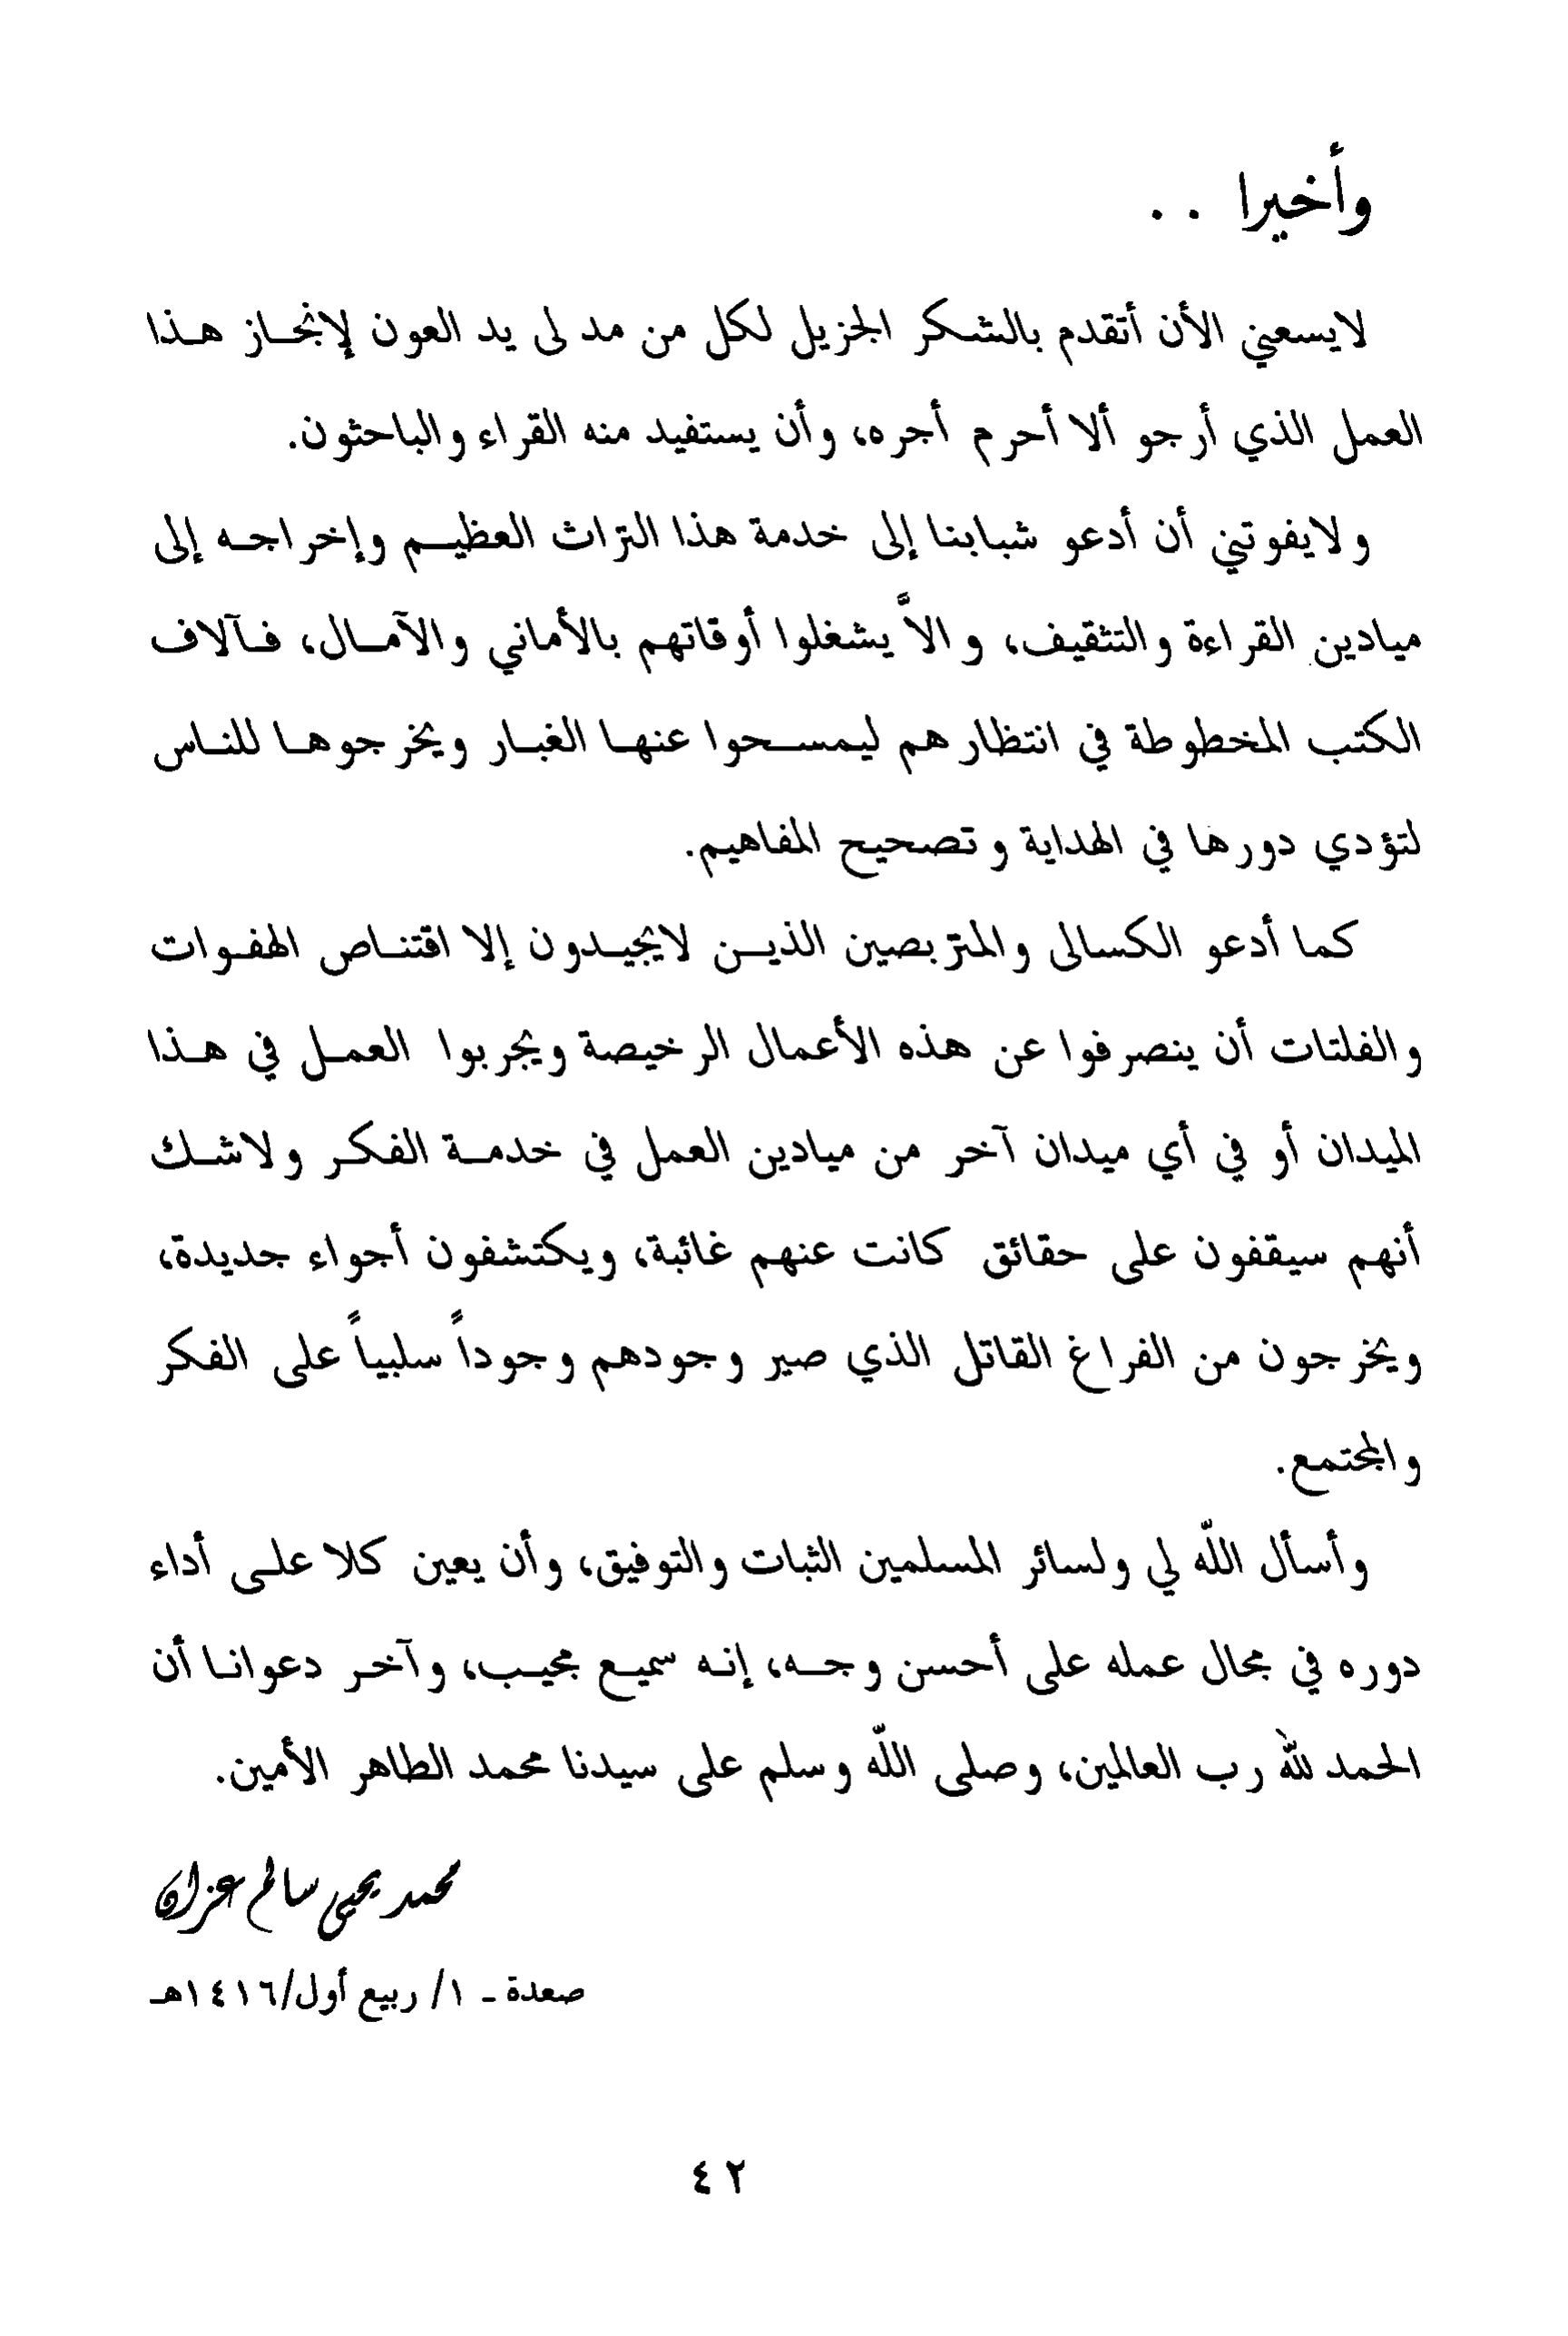 وأخيرا . .
لايسعني الأن أتقدم بالشكر الجزيل لكل من مد لى يد العون لإنجاز هذا
العمل الذي أرجو ألا أحرم أجره، وأن يستفيد منه القراء والباحثون.
ولايفوتني أن أدعو شبابنا إلى خدمة هذا التراث العظيم وإخراجه إلى
ميادين القراءة والتثقيف، والاَّ يشغلوا أوقاتهم بالأماني والآمال، فآلاف
الكتب المخطوطة في انتظارهم ليمسحوا عنها الغبار ويخرجوها للناس
لتؤدي دورها في الهداية وتصحيح المفاهيم.
كما أدعو الكسالى والمتربصين الذين لايجيدون إلا اقتناص الهفوات
والفلتات أن ينصرفوا عن هذه الأعمال الرخيصة ويجربوا العمل في هذا
الميدان أو في أي ميدان آخر من ميادين العمل في خدمة الفكر ولاشك
أنهم سيقفون على حقائق كانت عنهم غائبة، ويكتشفون أجواء جديدة،
ويخرجون من الفراغ القاتل الذي صير وجودهم وجوداً سلبياً على الفكر
والمجتمع.
وأسأل اللّه لي ولسائر المسلمين الثبات والتوفيق، وأن يعين كلا على أداء
دوره في مجال عمله على أحسن وجه، إنه سميع مجيب، وآخر دعوانا أن
الحمد للّه رب العالمين، وصلى اللّه وسلم على سيدنا محمد الطاهر الأمين.
محمد يحيى سالم عزان
صعدة ـ ١/ ربيع أول/١٤١٦هـ
٤٢